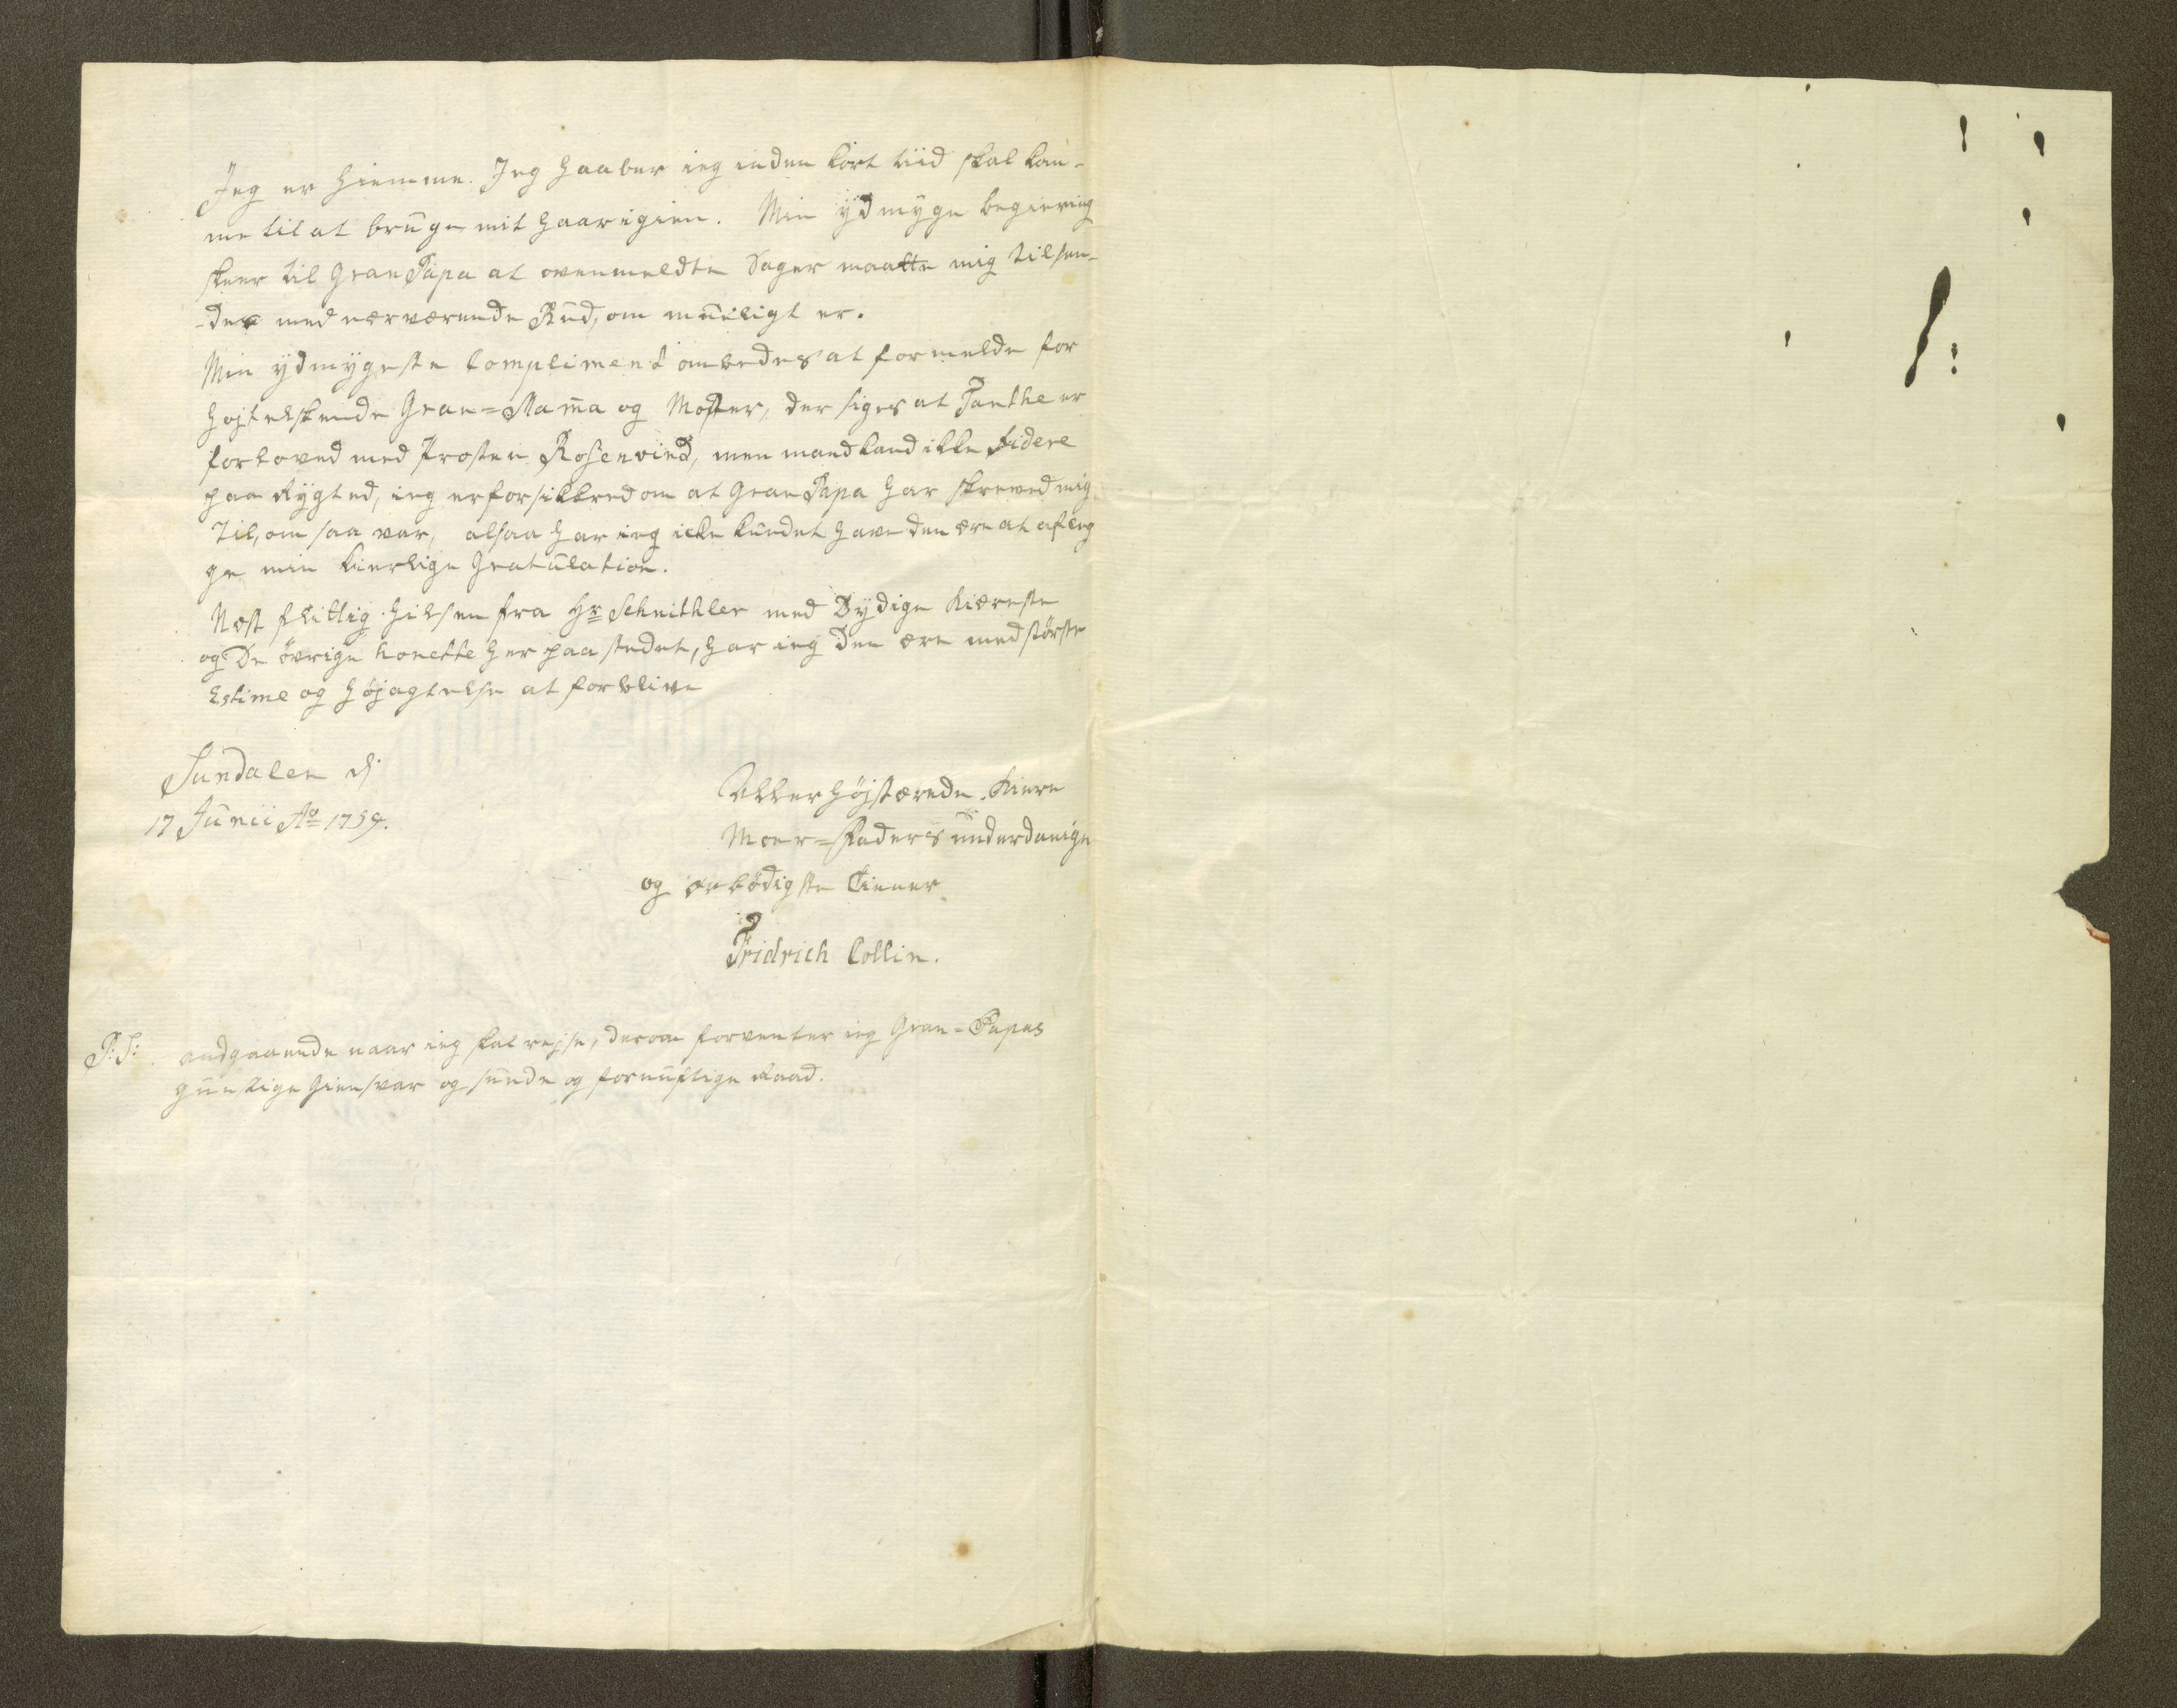 Jeg er hiemme. Jeg haaber ieg inden kort tiid skal kom-
me til at brüge mit haar igien. Min ÿdmÿge begiering
skeer til GranPapa at ovenmeldte Sager maatte mig tilsen-
-des med nærværende Bud, om müeligt er.
Min ÿdmÿgeste Compliment ombedes at formelde for
højtelskende Gran=Mama og Moster, der siges at Tanthe er
forloved med Prosten Rosenvind, men mand kand ikke fidere
paa Rÿgted, ieg er forsikkred om at GranPapa har skreved mig
til, om saa var, alsaa har ieg icke kundet have den ære at afleg
ge min kierlige Gratülation.
Næst flittig hilsen fra Hr Schnithler med Dÿdige Kiereste
og De övrige honette her paa stedet, har ieg den ære med störste
Estime og höjagtelse at forblive
Sundalen d
17 Junii Ao 1754.
Allerhöjstærede. Kiere
Moer=Faders ünderdanige
og ærbödigste Tiener
Fridrich Collin.
P:S: andgaaende naar ieg skal rejse, derom forventer ieg Gran=Papas
günstige Giensvar og sunde og fornüftige Raad.